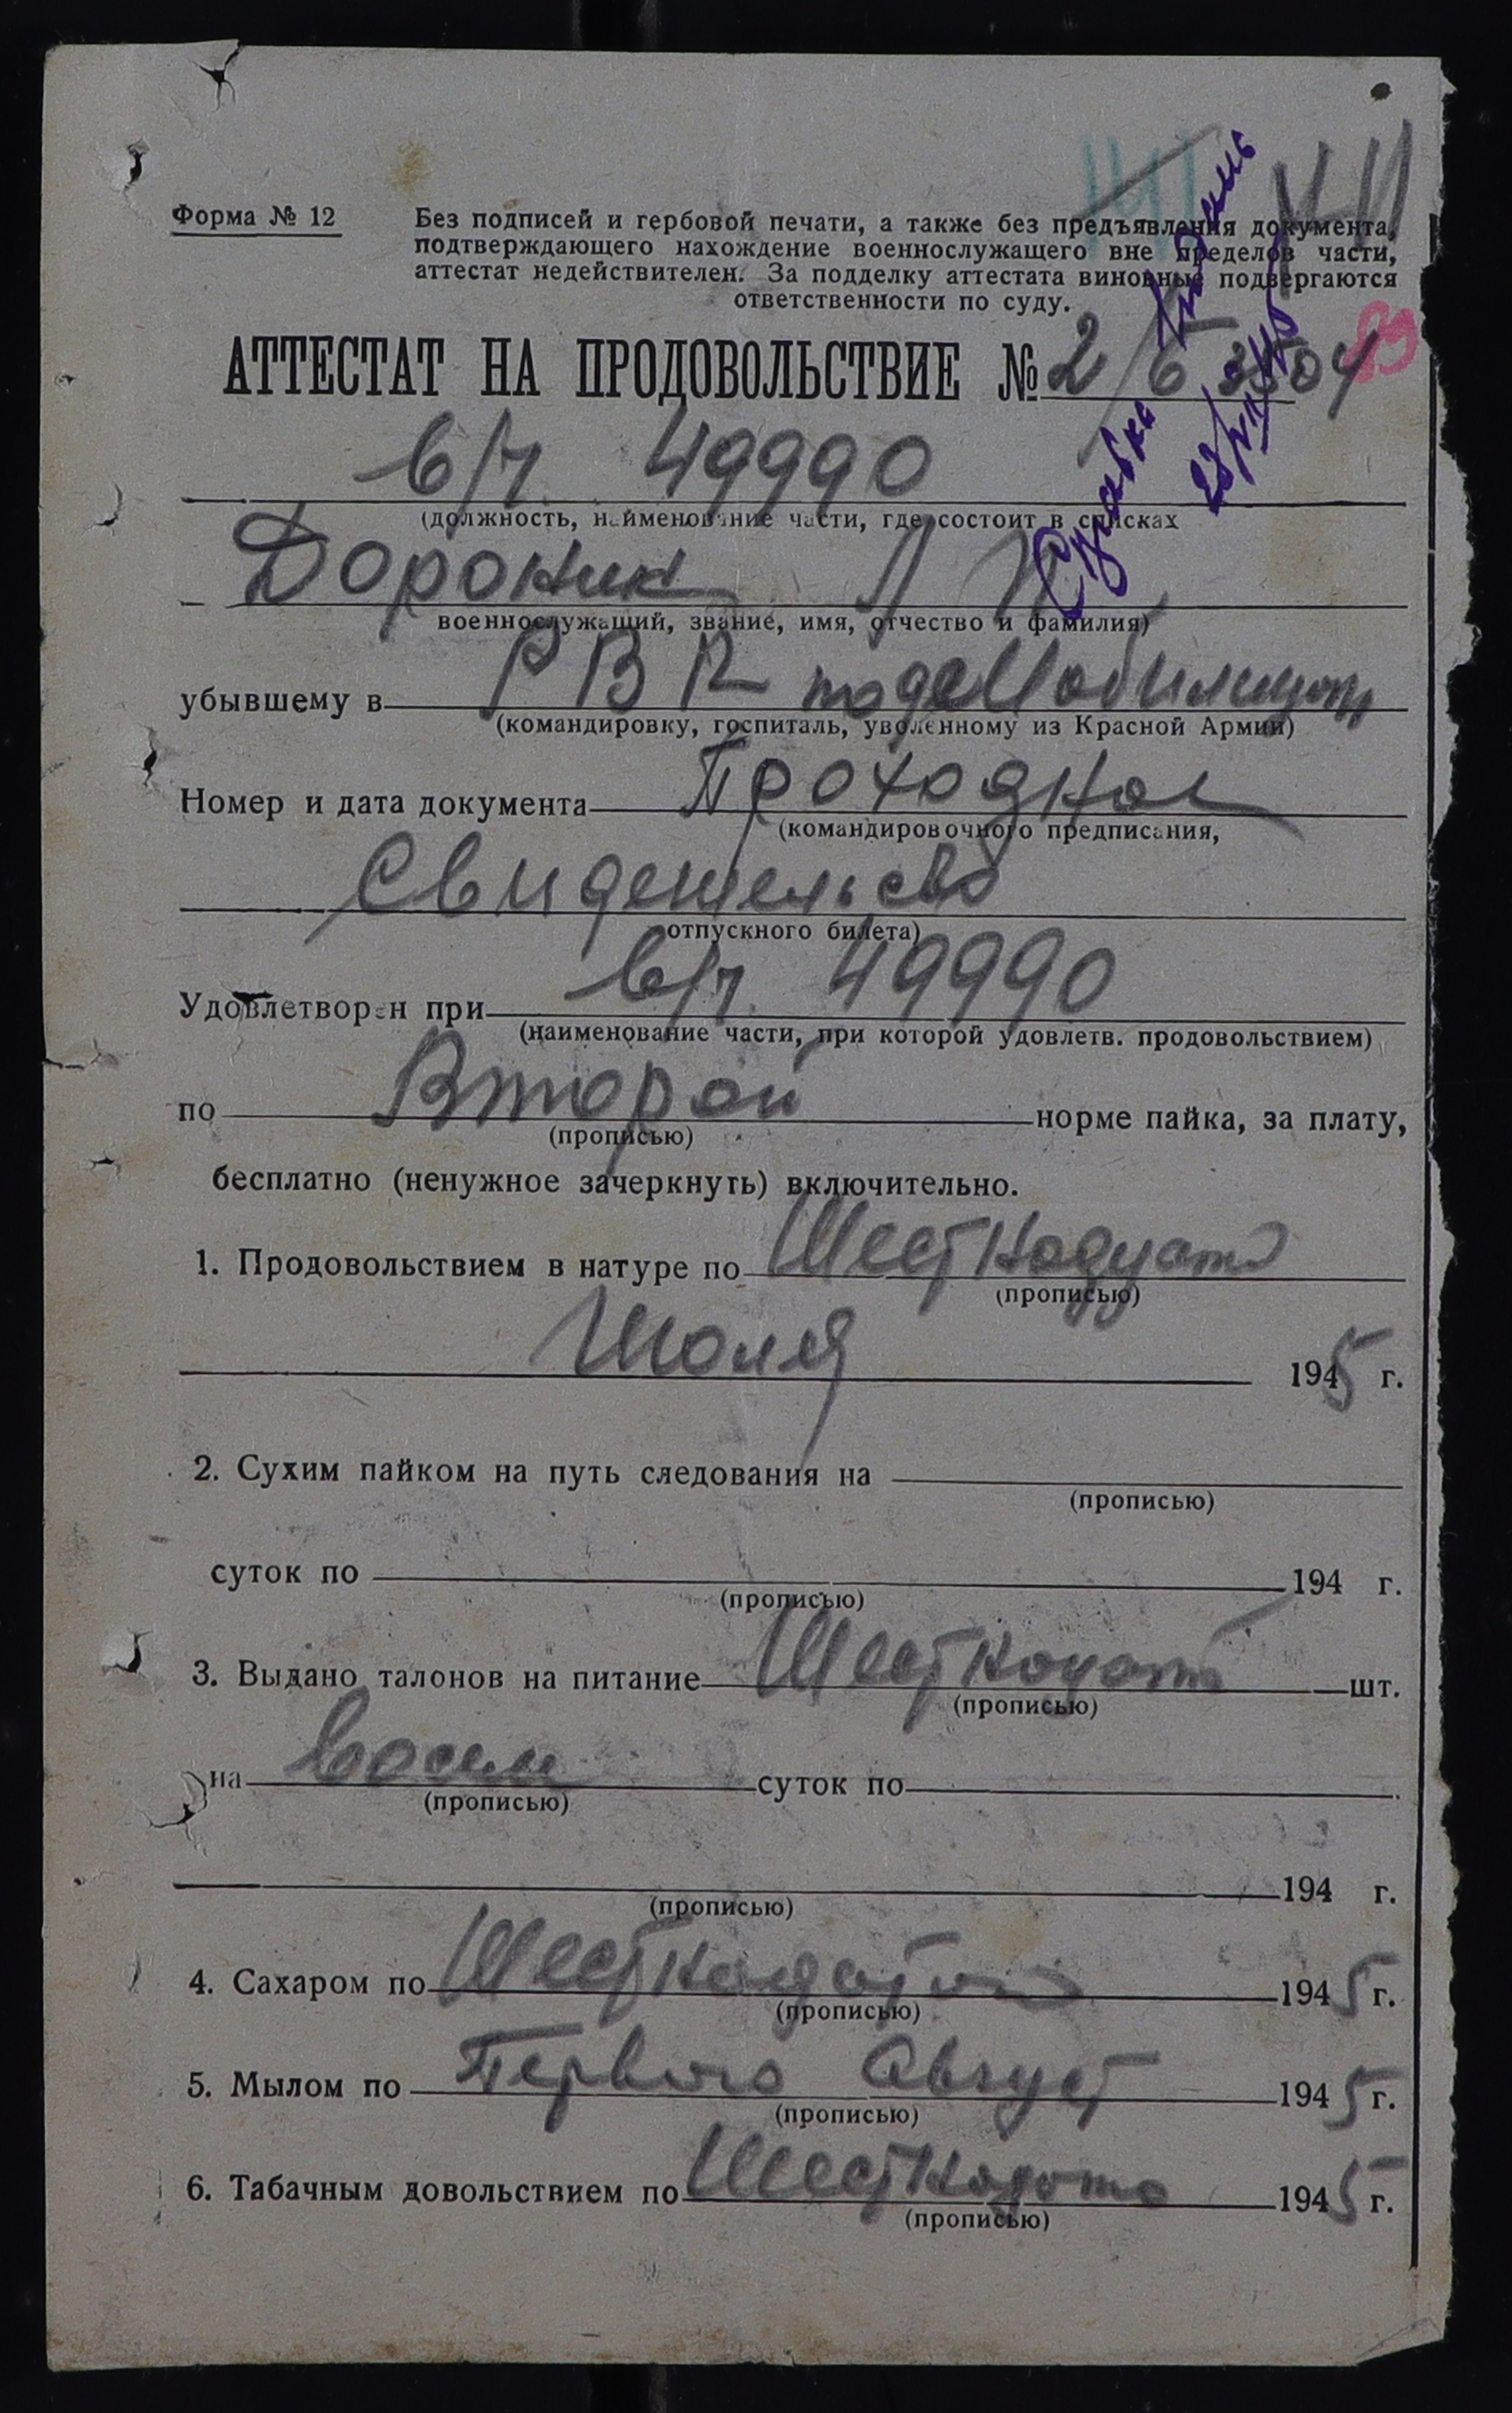 Форма № 12
Без подписей и гербовой печати, а также без предъявления документа,
подтверждающего нахождение военнослужащего вне пределов части,
аттестат недействителен. За подделку аттестата виновные подвергаются
ответственности по суду.
89
АТТЕСТАТ НА ПРОДОВОЛЬСТВИЕ № 2/6
Справка
в/ч 49990
(должность, наименование части, где состоит в списках
Дороник Л
военнослужащий, звание, имя, отчество и фамилия)
убывшему в РВК
(командировку, госпиталь, уволенному из Красной Армии)
Номер и дата документа Проходное
(командировочного предписания,
Свидетельсво
отпускного билета)
Удовлетворен при в/ч 49990
(наименование части, при которой удовлетв. продовольствием)
по Второй норме пайка, за плату,
(прописью)
бесплатно (ненужное зачеркнуть) включительно.
1. Продовольствием в натуре по Шестнадцато
(прописью)
Июля 1945 г.
2. Сухим пайком на путь следования на
(прописью)
суток по 194 г.
(прописью)
3. Выдано талонов на питание Шестнацать шт.
(прописью)
на восем суток по
(прописью)
194 г.
(прописью)
4. Сахаром по 1945 г.
(прописью)
5. Мылом по Первого Август 1945 г.
(прописью)
6. Табачным довольствием по 1945 г.
(прописью)